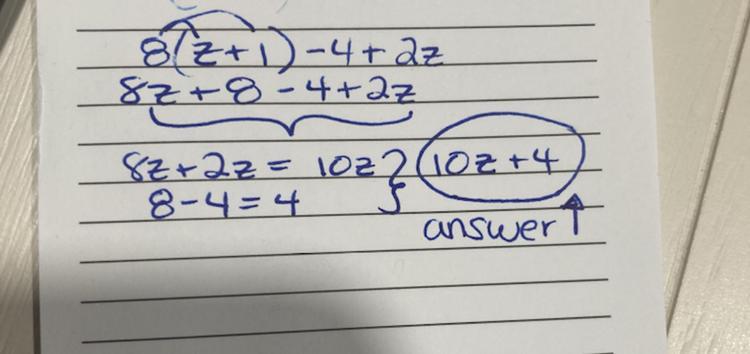 8(z+1)-4+2z
8z+8-4+2z
8z+2z = 10z } 10z+4
8-4=4
answer ↑